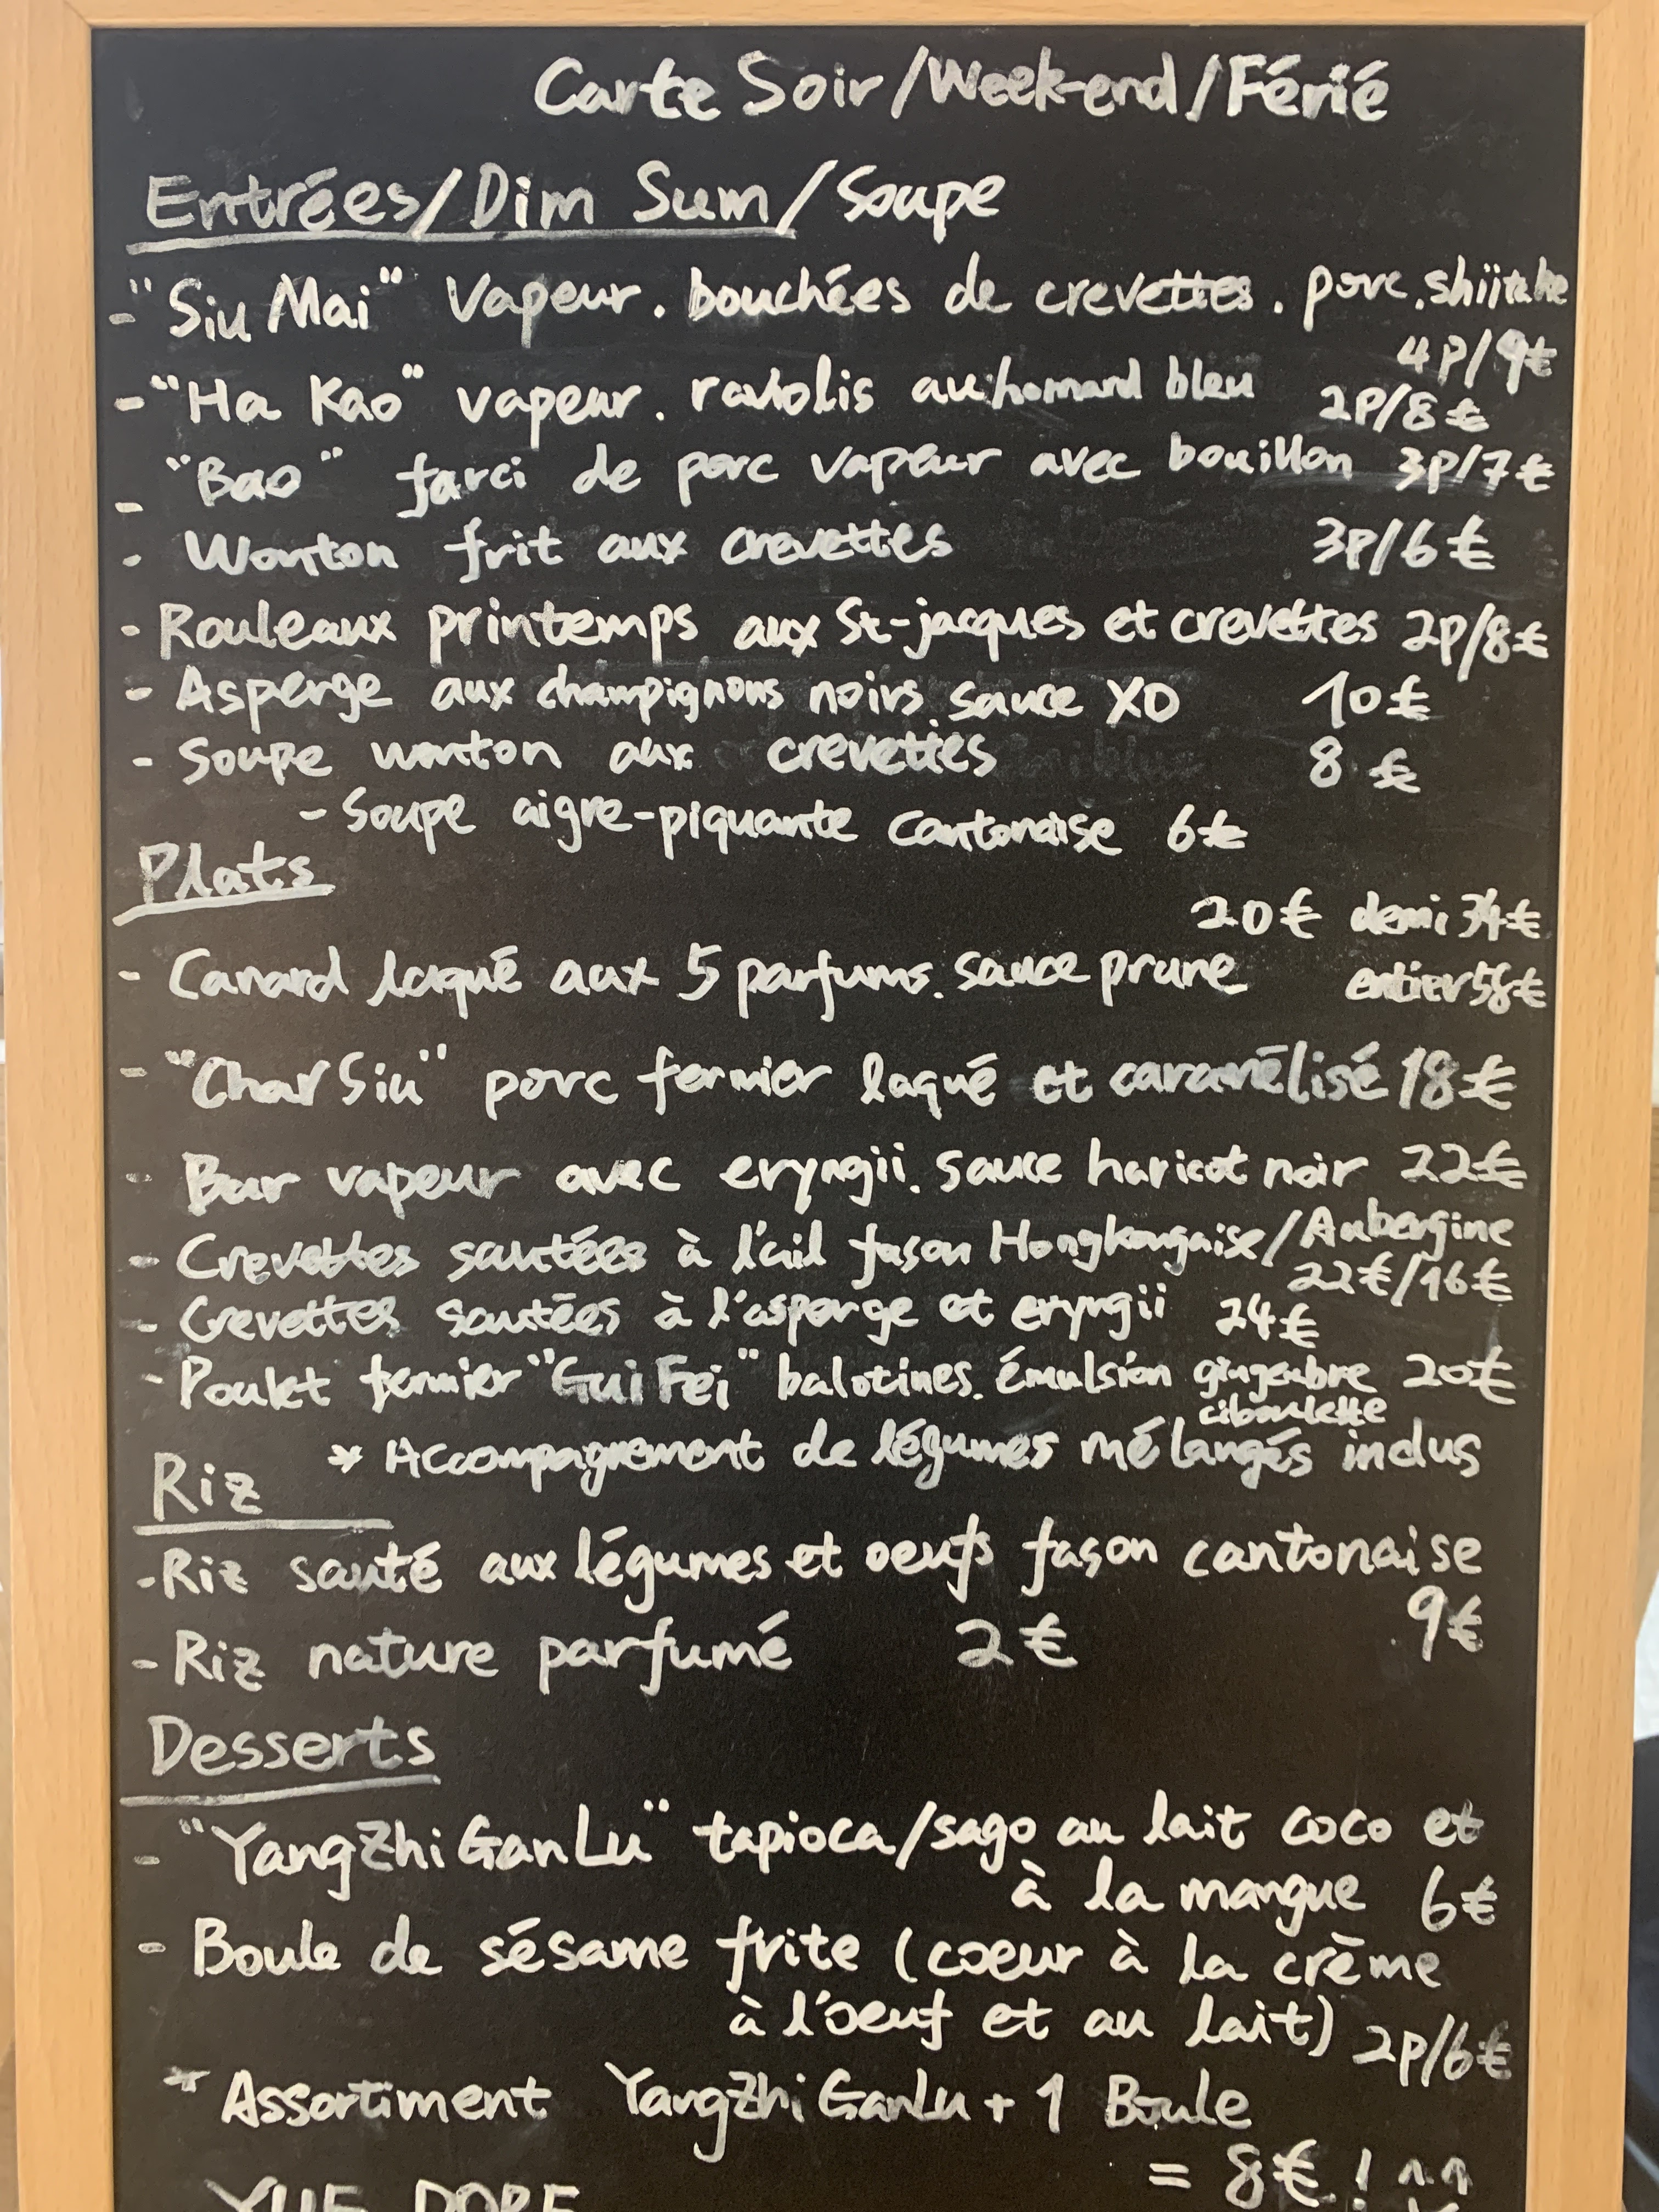 Carte Soir/Week-end/Férié
Entrées/Dim Sum/Soupe
- "Siu Mai" Vapeur. bouchées de crevettes. porc. shiitake
4P/9€
- "Ha Kao" vapeur. raviolis au homard bleu 2P/8€
- "Bao" farci de porc vapeur avec bouillon 3P/7€
- Wonton frit aux crevettes 3P/6€
- Rouleaux printemps aux St-jacques et crevettes 2P/8€
- Asperge aux champignons noirs. sauce XO 10€
- Soupe wonton aux crevettes 8€
- Soupe aigre-piquante cantonaise 6€
Plats
20€ demi 34€
- Canard laqué aux 5 parfums. sauce prune entier 58€
- "Char Siu" porc fermier laqué et caramélisé 18€
- Bar vapeur avec eryngii. sauce haricot noir 22€
- Crevettes sautées à l'ail façon Hongkongaise/Aubergine
22€/16€
- Crevettes sautées à l'asperge et eryngii 24€
- Poulet fermier "Gui Fei" balotines. émulsion gingembre 20€
ciboulette
* Accompagnement de légumes mélangés inclus
Riz
- Riz sauté aux légumes et oeufs façon cantonaise
9€
- Riz nature parfumé 2€
Desserts
- "YangZhi GanLu" tapioca/sago au lait coco et
à la mangue 6€
- Boule de sésame frite (coeur à la crème
à l'oeuf et au lait) 2P/6€
* Assortiment YangZhi GanLu + 1 Boule
= 8€ ! ^^